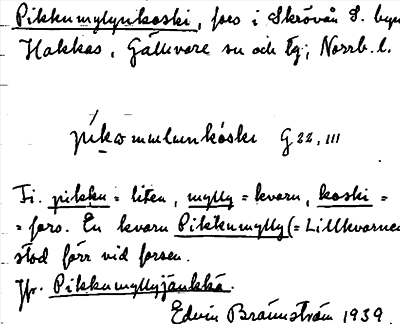 Pikkumyllynkoski, fors i Skrövån S. byn
Hakkas, Gällivare sn och tg; Norrb. l.
G 22, III
Fi. pikku = liten, mylly = kvarn, koski =
= fors. En kvarn Pikkumylly (= Lillkvarnen
stod förr vid forsen.
Jfr. Pikkumyllyjänkkä.
Edvin Brännström 1939.